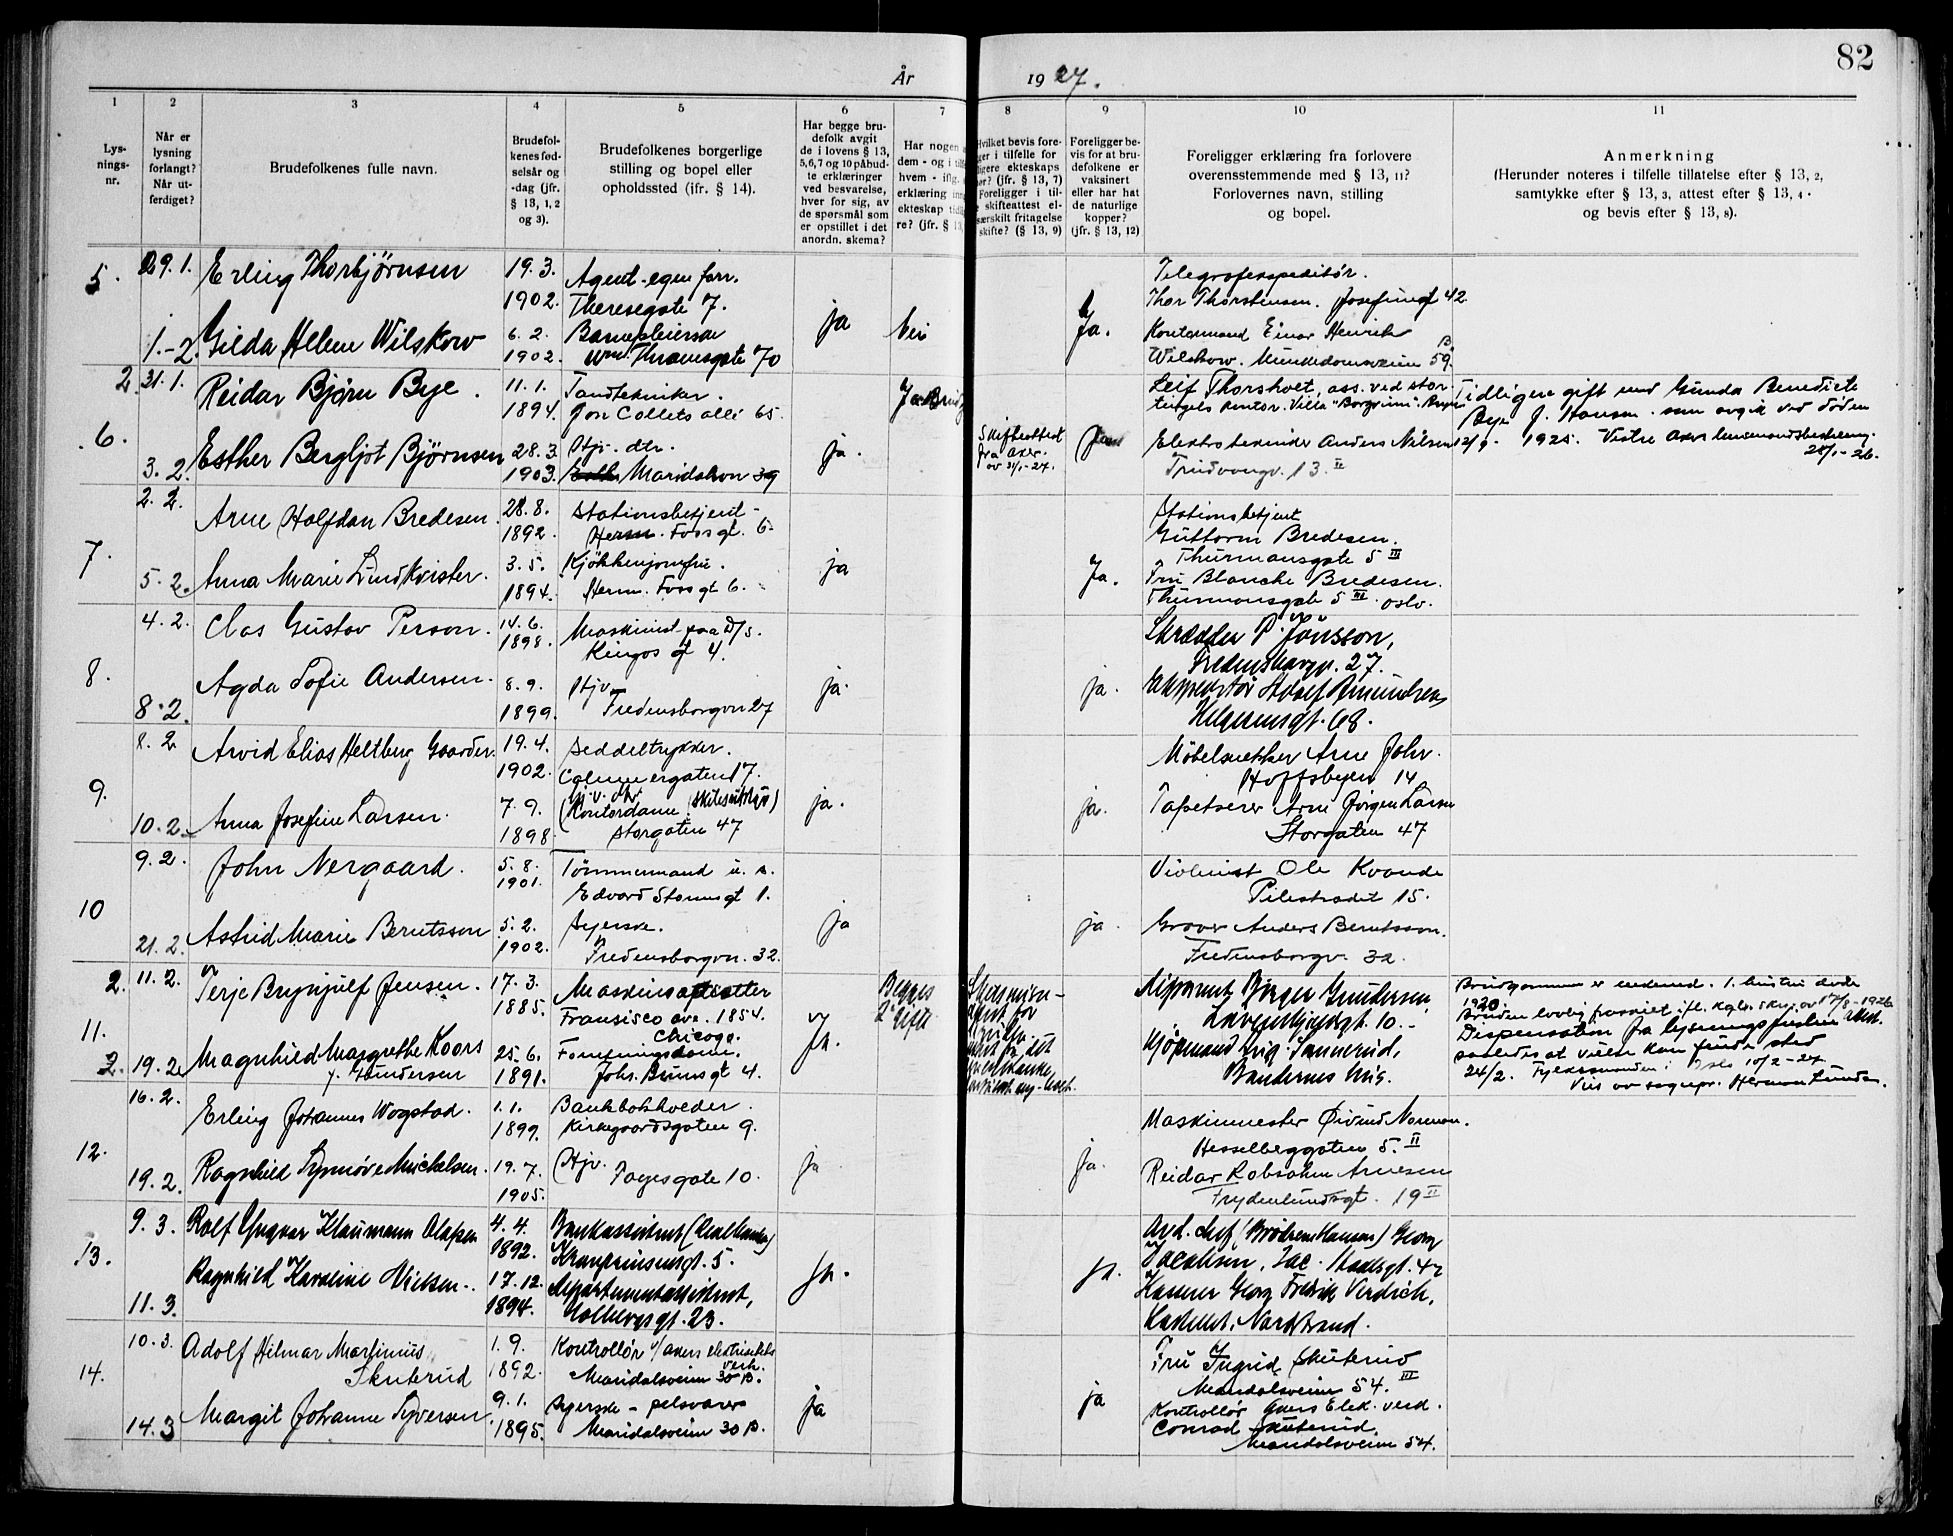 82
År 1927.
1 2 3 4 5 6 7 8 9 10 11
Lysningsnr.
Når er lysning forlangt? Når utferdiget?
Brudefolkenes fulle navn.
Brudefolkenes fødselsår og -dag (jfr. § 13, 1, 2 og 3).
Brudefolkenes borgerlige stilling og bopel eller opholdssted (ifr. § 14).
Har begge brudefolk avgit de i lovens § 13, 5,6,7 og 10 påbudte erklæringer ved besvarelse, hver for sig, av de spørsmål som er opstillet i det anordn. skema?
Har nogen
dem - og i
hvem - iflg.
erklæring
ekteskap
re? (jfr. § 13,
Hvilket bevis fore-
ger i tilfelle for
ligere ekteskaps
(jfr. § 13, 7)
Foreligger i til-
skifteattest el-
særskilt fritagelse
skifte? (§ 13, 9)
Foreligger bevis for at brudefolkene er vaksinert eller har hat de naturlige kopper? (jfr. § 13, 12)
Foreligger erklæring fra forlovere overensstemmende med § 13, 11? Forlovernes navn, stilling og bopel.
Anmerkning
(Herunder noteres i tilfelle tillatelse efter § 13, 2, samtykke efter § 13, 3, attest efter § 13, 4 · og bevis efter § 13, 8).
5. 29. 1. Erling Thorbjørnsen 19. 3. 1902. Agent - egen forr. Theresegate 7.
1.-2. Gilda Helene Wilskow 6. 2. 1902. Barnepleierske Wm Thranesgate 70 ja Nei Ja.
Telegrafekspeditør.
Thor Thorstensen. Josefinegt 42.
Kontormand Einar Henrik
Wilskow. Munkedamsveien 59 B.
2. 31. 1. Reidar Bjørn Bye. 11. 1. 1894. Tandtekniker. Jon Collets allé 65.
6. 3. 2. Esther Bergljot Bjørnsen 28. 3. 1903. Hjv. dtr. Maridalsvn 39 ja.
Skifteattest
fra Aker.
av 31/1-27.
Leif Thorshoet, ass. ved stor-
tingets kontor. Villa "Borgheim".
Elektrotekniker Anders Nilsen
Trudvangv. 13. II
Tidligere gift med Gunda Benedicte
Bye f. Hansen som avgik ved døden
12/9. 1925. Vestre Aker lensmandsbestilling.
28/1-26.
7. 2. 2. Arne Halfdan Bredesen. 28. 8. 1892. Stationsbetjent - Herm. Foss gt. 6.
5. 2. Anna Marie Lindkvister. 3. 5. 1894. Kjøkkenjomfru. Herm. Foss gt 6. ja Ja.
Stationsbetjent
Guttorm Bredesen.
Thurmannsgate 5 III
Fru Blanche Bredesen.
Thurmannsgate 5 III. Oslo.
8. 4. 2. Clas Gustav Person. 14. 6. 1898. Maskinist paa D/S. Kingos gt 4.
8. 2. Agda Sofie Andersen. 8. 9. 1899. Hjv. Fredensborgvn 27 ja. ja.
Skrædder P. Jönsson,
Fredensborgv. 27.
Ekspeditør Adolf Amundsen,
Helgesensgt. 68.
9. 8. 2. Arvid Elias Heltberg Gaarder. 19. 4. 1902. Seddeltrykker. Calmeyergaten 17.
10. 2. Anna Josefine Larsen. 7. 9. 1898 Hj.v. dtr. (Kontordame) Storgaten 47 ja. ja.
Møbelsnekker Arne Johr.
Hoffsbyen 14
Tapetserer Arne Jørgen Larsen
Storgaten 47
10 9. 2. John Nergaard. 5. 8. 1901. Tømmermand u. a. Edvard Stormsgt 1.
21. 2. Astrid Marie Berntsson 5. 2. 1902. Syerske. Fredensborgvn. 32. ja ja.
Violinist Ole Kvande
Pilestrædet 15.
Graver Anders Berntsson.
Fredensborgv. 32.
2. 11. 2. Terje Brynjulf Jensen. 17. 3. 1885. Maskinopsetter Fransisco ave. 1854. Chicago.
11. 2. 19. 2. Magnhild Margrethe Koors f. Gundersen 25. 6. 1891. Forretningsdame. Johs. Brunsgt 4. Ja. Begges 2det gifte
Disponent Birger Gundersen
10.
Kjøpmand Sannerud,
Bandernes hus.
Brudgommen er enkemand. 1. hustru døde
1920.
Bruden lovlig fraskilt ifl. kgl. skr. av 17/8-1926
Dispensation fra lysningsfristen
saaledes at vielse kan finde sted
24/2. Fylkesmanden i Oslo 10/2-27
Vies av sogнepr. Herman Lunde.
12. 16. 2. Erling Johannes Wogstad. 1. 1. 1899. Bankbokholder. Kirkegaardsgaten 9.
19. 2. Ragnhild Synnøve Michelsen. 19. 7. 1905. Hjv. Fayesgate 10. ja ja.
Maskinmester Øivind Norman.
Hesselberggaten 5. II
Reidar Robsahm Arnesen
Frydenlundsgt. 19 II
13. 9. 3. Rolf Yngvar Klaumann Olafsen 4. 4. 1892. Bankassistent (Realbanken) Kronprinsensgt. 5.
11. 3. Ragnhild Karoline Nielsen. 17. 12. 1894. Departementsassistent, Holbergsgt. 23. ja. ja.
Avd. chef (Brødrene Hansen) Georg
Jacobsen, Jac. Aallsgt. 42
Kasserer Georg Fredrik Verdich,
Nordstrand.
14. 10. 3. Adolf Hilmar Martinius Skuterud 1. 9. 1892. Kontrollør v/ Akers elektricitetsverk. Maridalsveien 30 B.
14. 3 Margit Johanne Syversen 9. 1. 1895. Syerske - pelsvarer Maridalsveien 30 B. ja ja
Fru Ingrid Skuterud
Maridalsveien 54. III
Kontrollør Akers Elek. verk.
Conrad Skuterud.
Maridalsveien 54.